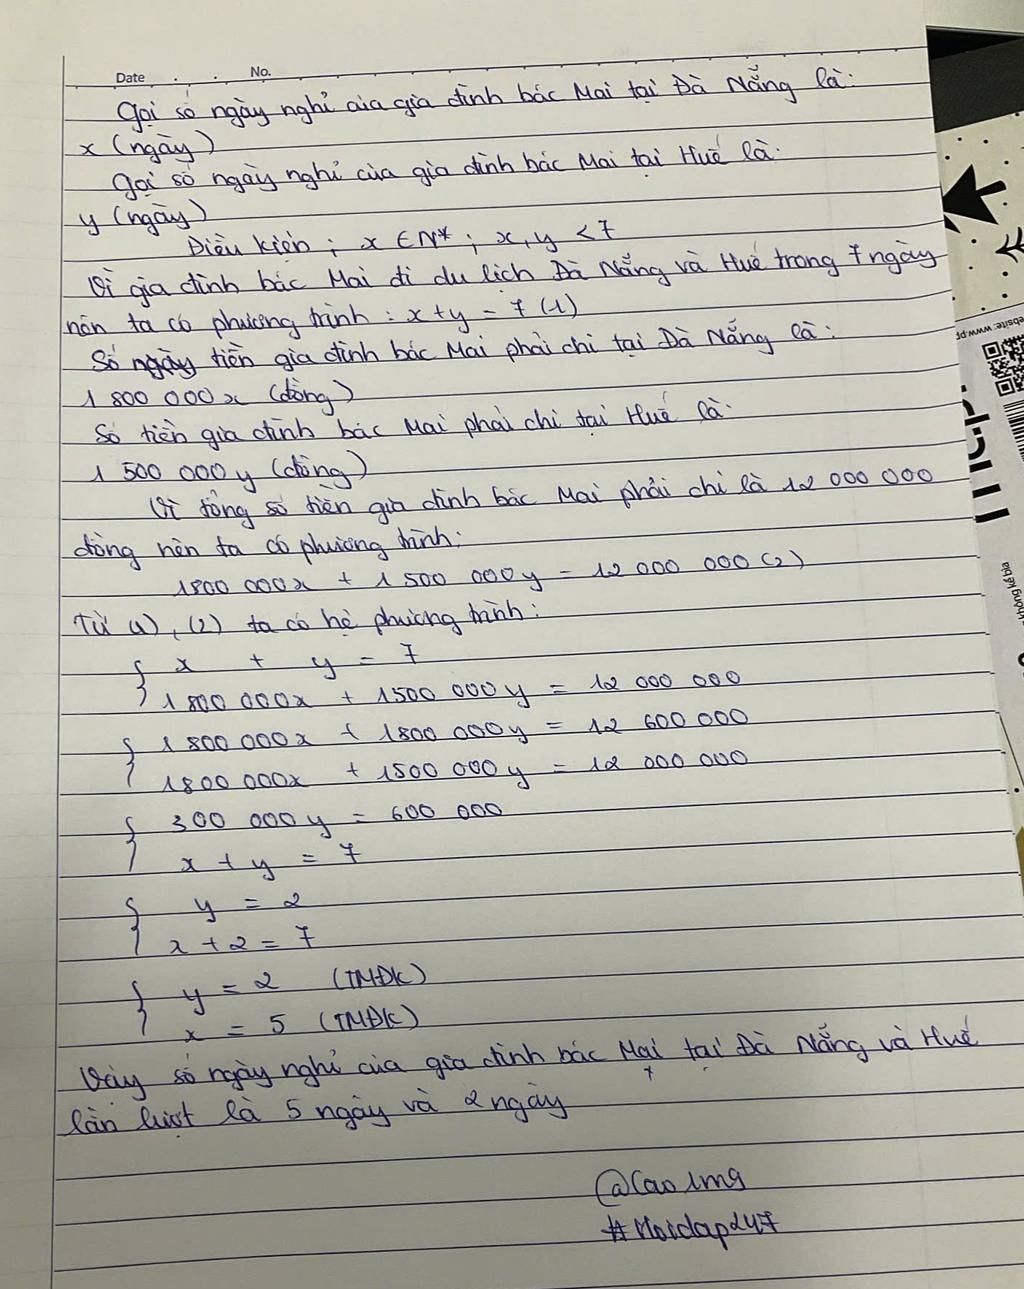 Date . . No.
Gọi số ngày nghỉ của gia đình bác Mai tại Đà Nẵng là:
x (ngày)
Gọi số ngày nghỉ của gia đình bác Mai tại Huế là:
y (ngày)
Điều kiện : x ∈ N* ; x, y < 7
Vì gia đình bác Mai đi du lịch Đà Nẵng và Huế trong 7 ngày
nên ta có phương trình : x + y = 7 (1)
Số ngày tiền gia đình bác Mai phải chi tại Đà Nẵng là:
1 800 000 x (đồng)
Số tiền gia đình bác Mai phải chi tại Huế là:
1 500 000 y (đồng)
Vì tổng số tiền gia đình bác Mai phải chi là 12 000 000
đồng nên ta có phương trình:
1800 000x + 1 500 000y = 12 000 000 (2)
Từ (1), (2) ta có hệ phương trình:
{ x + y = 7
1 800 000x + 1500 000y = 12 000 000
{ 1 800 000x + 1800 000y = 12 600 000
1800 000x + 1500 000y = 12 000 000
{ 300 000y = 600 000
x + y = 7
{ y = 2
x + 2 = 7
{ y = 2 (TMĐK)
x = 5 (TMĐK)
Vậy số ngày nghỉ của gia đình bác Mai tại Đà Nẵng và Huế
lần lượt là 5 ngày và 2 ngày
@Cao1mg
#Hoidap247